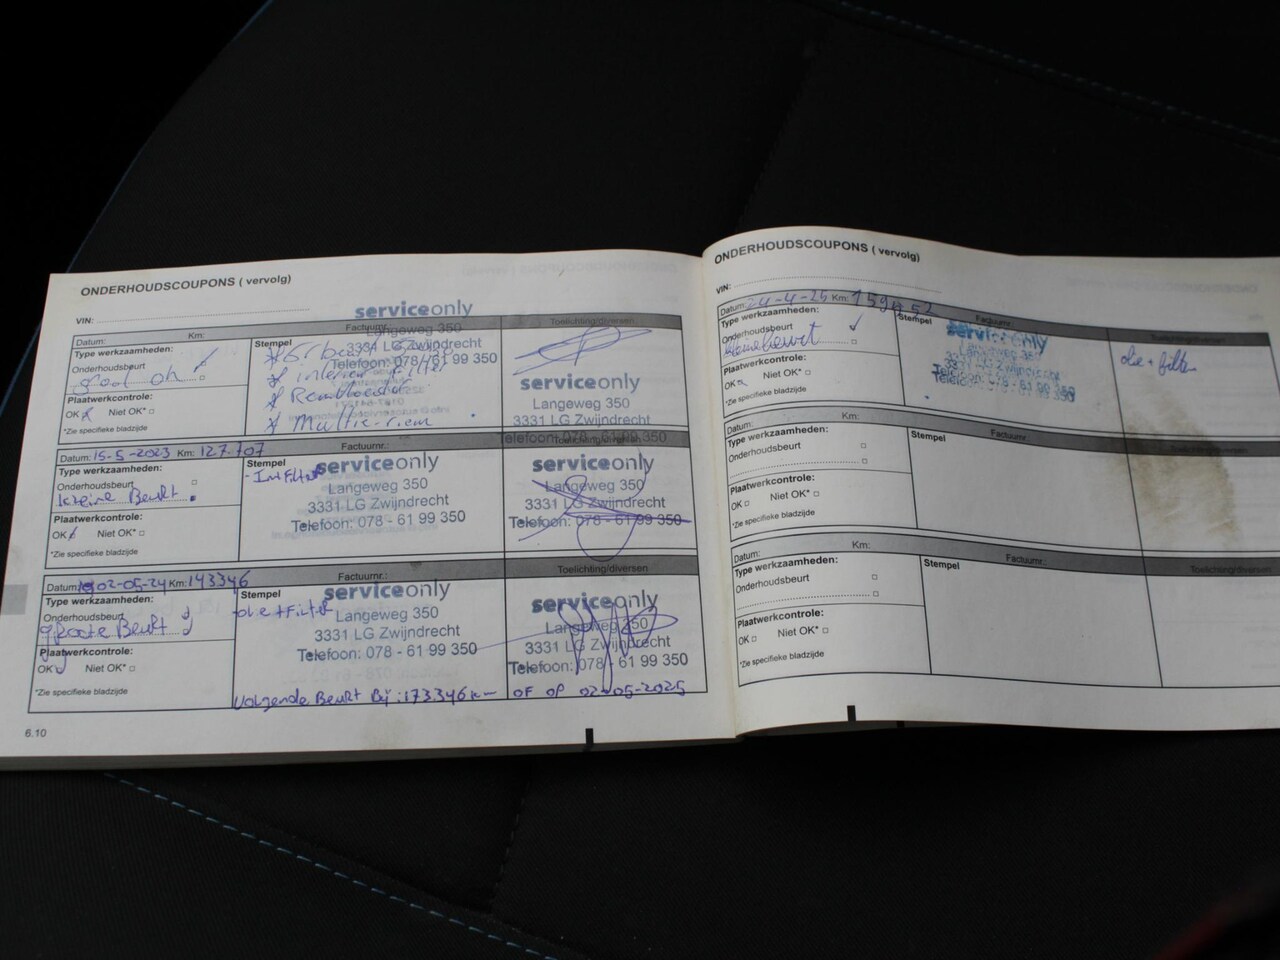 ONDERHOUDSCOUPONS ( vervolg)
VIN:
serviceonly
Langeweg 350
3331 LG Zwijndrecht
Telefoon: 078 - 61 99 350
Datum: Km: Factuurnr.: Toelichting/diversen
Type werkzaamheden:
Onderhoudsbeurt
Plaatwerkcontrole:
OK Niet OK*
*Zie specifieke bladzijde
Stempel
* Gr beurt
* interieur filter
* Remvloeistof
* Multi-riem
serviceonly
Langeweg 350
3331 LG Zwijndrecht
Telefoon: 078 - 61 99 350
Datum: 15-5-2023 Km: 127.707 Factuurnr.: Toelichting/diversen
Type werkzaamheden:
Onderhoudsbeurt
kleine Beurt
Plaatwerkcontrole:
OK Niet OK*
*Zie specifieke bladzijde
Stempel
- Int Filter
serviceonly
Langeweg 350
3331 LG Zwijndrecht
Telefoon: 078 - 61 99 350
serviceonly
Langeweg 350
3331 LG Zwijndrecht
Telefoon: 078 - 61 99 350
Datum: 02-05-24 Km: 143346 Factuurnr.: Toelichting/diversen
Type werkzaamheden:
Onderhoudsbeurt
grote Beurt
Plaatwerkcontrole:
OK Niet OK*
*Zie specifieke bladzijde
Stempel
olie + Filter
serviceonly
Langeweg 350
3331 LG Zwijndrecht
Telefoon: 078 - 61 99 350
serviceonly
Langeweg 350
3331 LG Zwijndrecht
Telefoon: 078 - 61 99 350
Volgende Beurt Bij: 173346 km OF OP 02-05-2025
6.10
ONDERHOUDSCOUPONS ( vervolg)
VIN:
Datum: 24-4-25 Km: Factuurnr.: Toelichting/diversen
Type werkzaamheden:
Onderhoudsbeurt
kleine beurt
Plaatwerkcontrole:
OK Niet OK*
*Zie specifieke bladzijde
Stempel
serviceonly
Langeweg 350
3331 LG Zwijndrecht
Telefoon: 078 - 61 99 350
olie + filter
Datum: Km: Factuurnr.:
Type werkzaamheden:
Onderhoudsbeurt
Plaatwerkcontrole:
OK Niet OK*
*Zie specifieke bladzijde
Stempel
Datum: Km: Factuurnr.: Toelichting/diversen
Type werkzaamheden:
Onderhoudsbeurt
Plaatwerkcontrole:
OK Niet OK*
*Zie specifieke bladzijde
Stempel